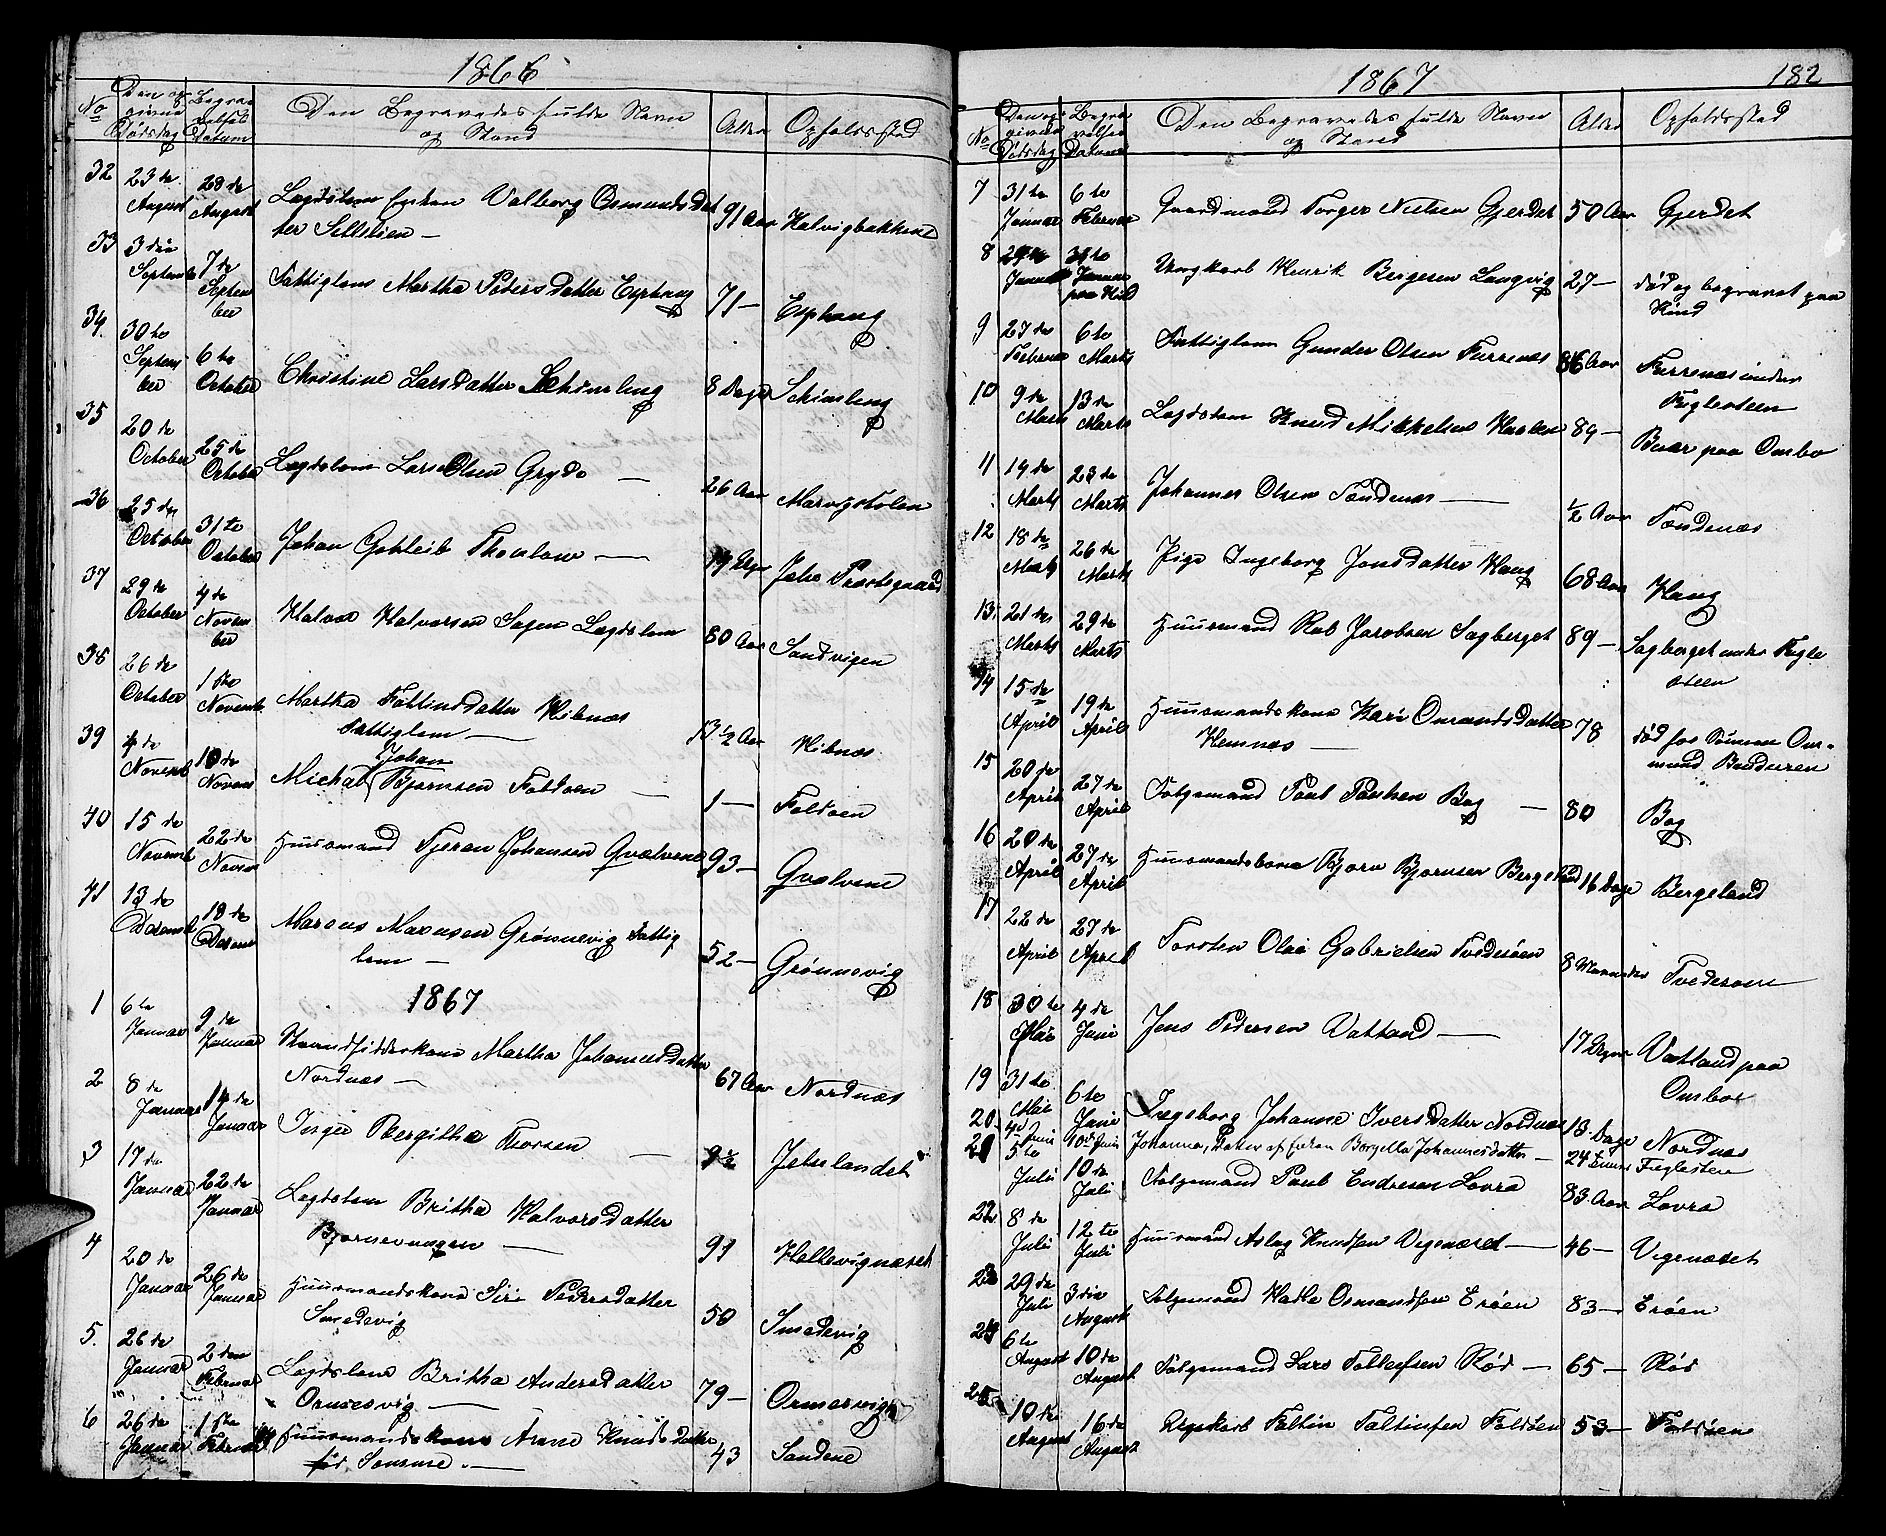 1866
No
Den op
givne
Dødsdag
Begra
velses
Datum
Den Begravedes fulde Navn
og Stand
Alder
Opholdssted
32 23de August 28de August Lægdslem Enken Valborg Osmundsdat 91 Aar Halvigbakken
ter
33 3die Septemb 7de Septem ber Fattiglem Martha Pedersdatter Ersphaug 71 — Ersphaug
34. 30te Septem ber 6te October Christine Larsdatter Schimling 8 Dage Schimling
35 20de October 25de October Lægdslem Lars Olsen Gryde — 26 Aar Marvigstølen
36 25de October 31te October Johan Gotleib Thoulow — Jelse Præstegaard
37 29de October 4de Novem ber Halvor Halvorsen Sagen Lægdslem 80 Aar Sandvigen
38 26de October 1ste Novemb Martha Foltinsdatter Hibnæs 13 1/2 Aar Hibnæs
Fattiglem —
39 4de Novemb 10de Novem Michal Johan Bjørnsen Foldøen — 1 — Foldøen
40 15de Novemb 22de Novem Huusmand Tjeran Johansen Qvalvene 93 — Qvalvene
41 13de Decemb 18de Decem Marcus Grønnevig Fattig 52 — Grønnevig
lem —
1867
1 6te Januar 9de Januar Martha Johannesdatter 67 Aar Nordnæs
Nordnæs —
2 8de Januar 14de Januar Inger Bergitha Thorsen — 9 1/2 Jelselandet
3 17de Januar 22de Januar Lægdslem Britha Halvorsdatter 91 Hallevignæset
Bjørnevaagen —
4 20de Januar 26de Januar Huusmandskone Siri Pedersdatter 50 Smedevig
Smedevig
5. 26de Januar 2den Februar Lægdslem Britha Andersdatter 79 — Ormesvig
Ormesvig —
6 26de Januar 1ste Februar Huusmandskone Anne Knudsdatter 43 Sandene
1867
182
No
Den op
givne
Dødsdag
Begra
velses
Datum
Den Begravedes fulde Navn
og Stand
Alder
Opholdssted
7 31te Januar 6te Februar Gaardmand Torger Nielsen Gjerdet 50 Aar Gjerdet
8 Januar Januar paa Hid Ungkarl Henrik Bergesen Langvig 27 — død og begravet paa
9 27de Februar 6te Marts Fattiglem Gunder Olsen Furrenæs 86 Aar Furrenæs under
Fuglesteen
10 9de Marts 13de Marts Lægdslem Knud Mikkelsen 89 — Buer paa Ombo
11 19de Marts 23de Marts Johannes Olsen Tøndenæs — 1/2 Aar Tøndenæs
12 18de Marts 26de Marts Pige Ingeborg Jonsdatter Haug 68 Aar Haug
13. 21de Marts 29de Marts Huusmand Rab Jacobsen Sagberget 89 — Sagberget under Fugle
steen
14 15de April 19de April Huusmandskone Kari Osmundsdatter 78
Hemnæs —
15 20de April 27de April Følgemand Poul Poulsen Bag — 80 Bag
16 20de April 27de April Huusmandsbarn Bjørn Bjørnsen Bergeland 16 Dage Bergeland
17 22de April 27de April Torsten Olai Gabrielsen Tvedesøen 8 Maaneder Tvedesøen
18 30te Mai 4de Juni Jens Pedersen Vatland — 17 Vatland paa
Omboe
19 31te Mai 6te Juni Ingeborg Johanne Iversdatter Nordnæs 13. Dage Nordnæs
20. 4de Juni 10de Juni Johanna, Datter af Enken Borgella Johannesdatter — 24 Timer Fuglesteen
21 5te Juli 10de Juli Følgemand Poul Endresen Lovra 83 Aar Lovra
22 8de Juli 12te Juli Huusmand Aslag Knudsen Vigenæset — 46 — Vigenæset
23 29de Juli 3die August Følgemand Hadle Osmundsen Erøen 83 — Erøen
24 6te August 10de August Følgemand Lars Tollefsen Rød — 65 — Rød
25 10de August 16de August Foltin Foltinsen Foldøen 53 — Foldøene